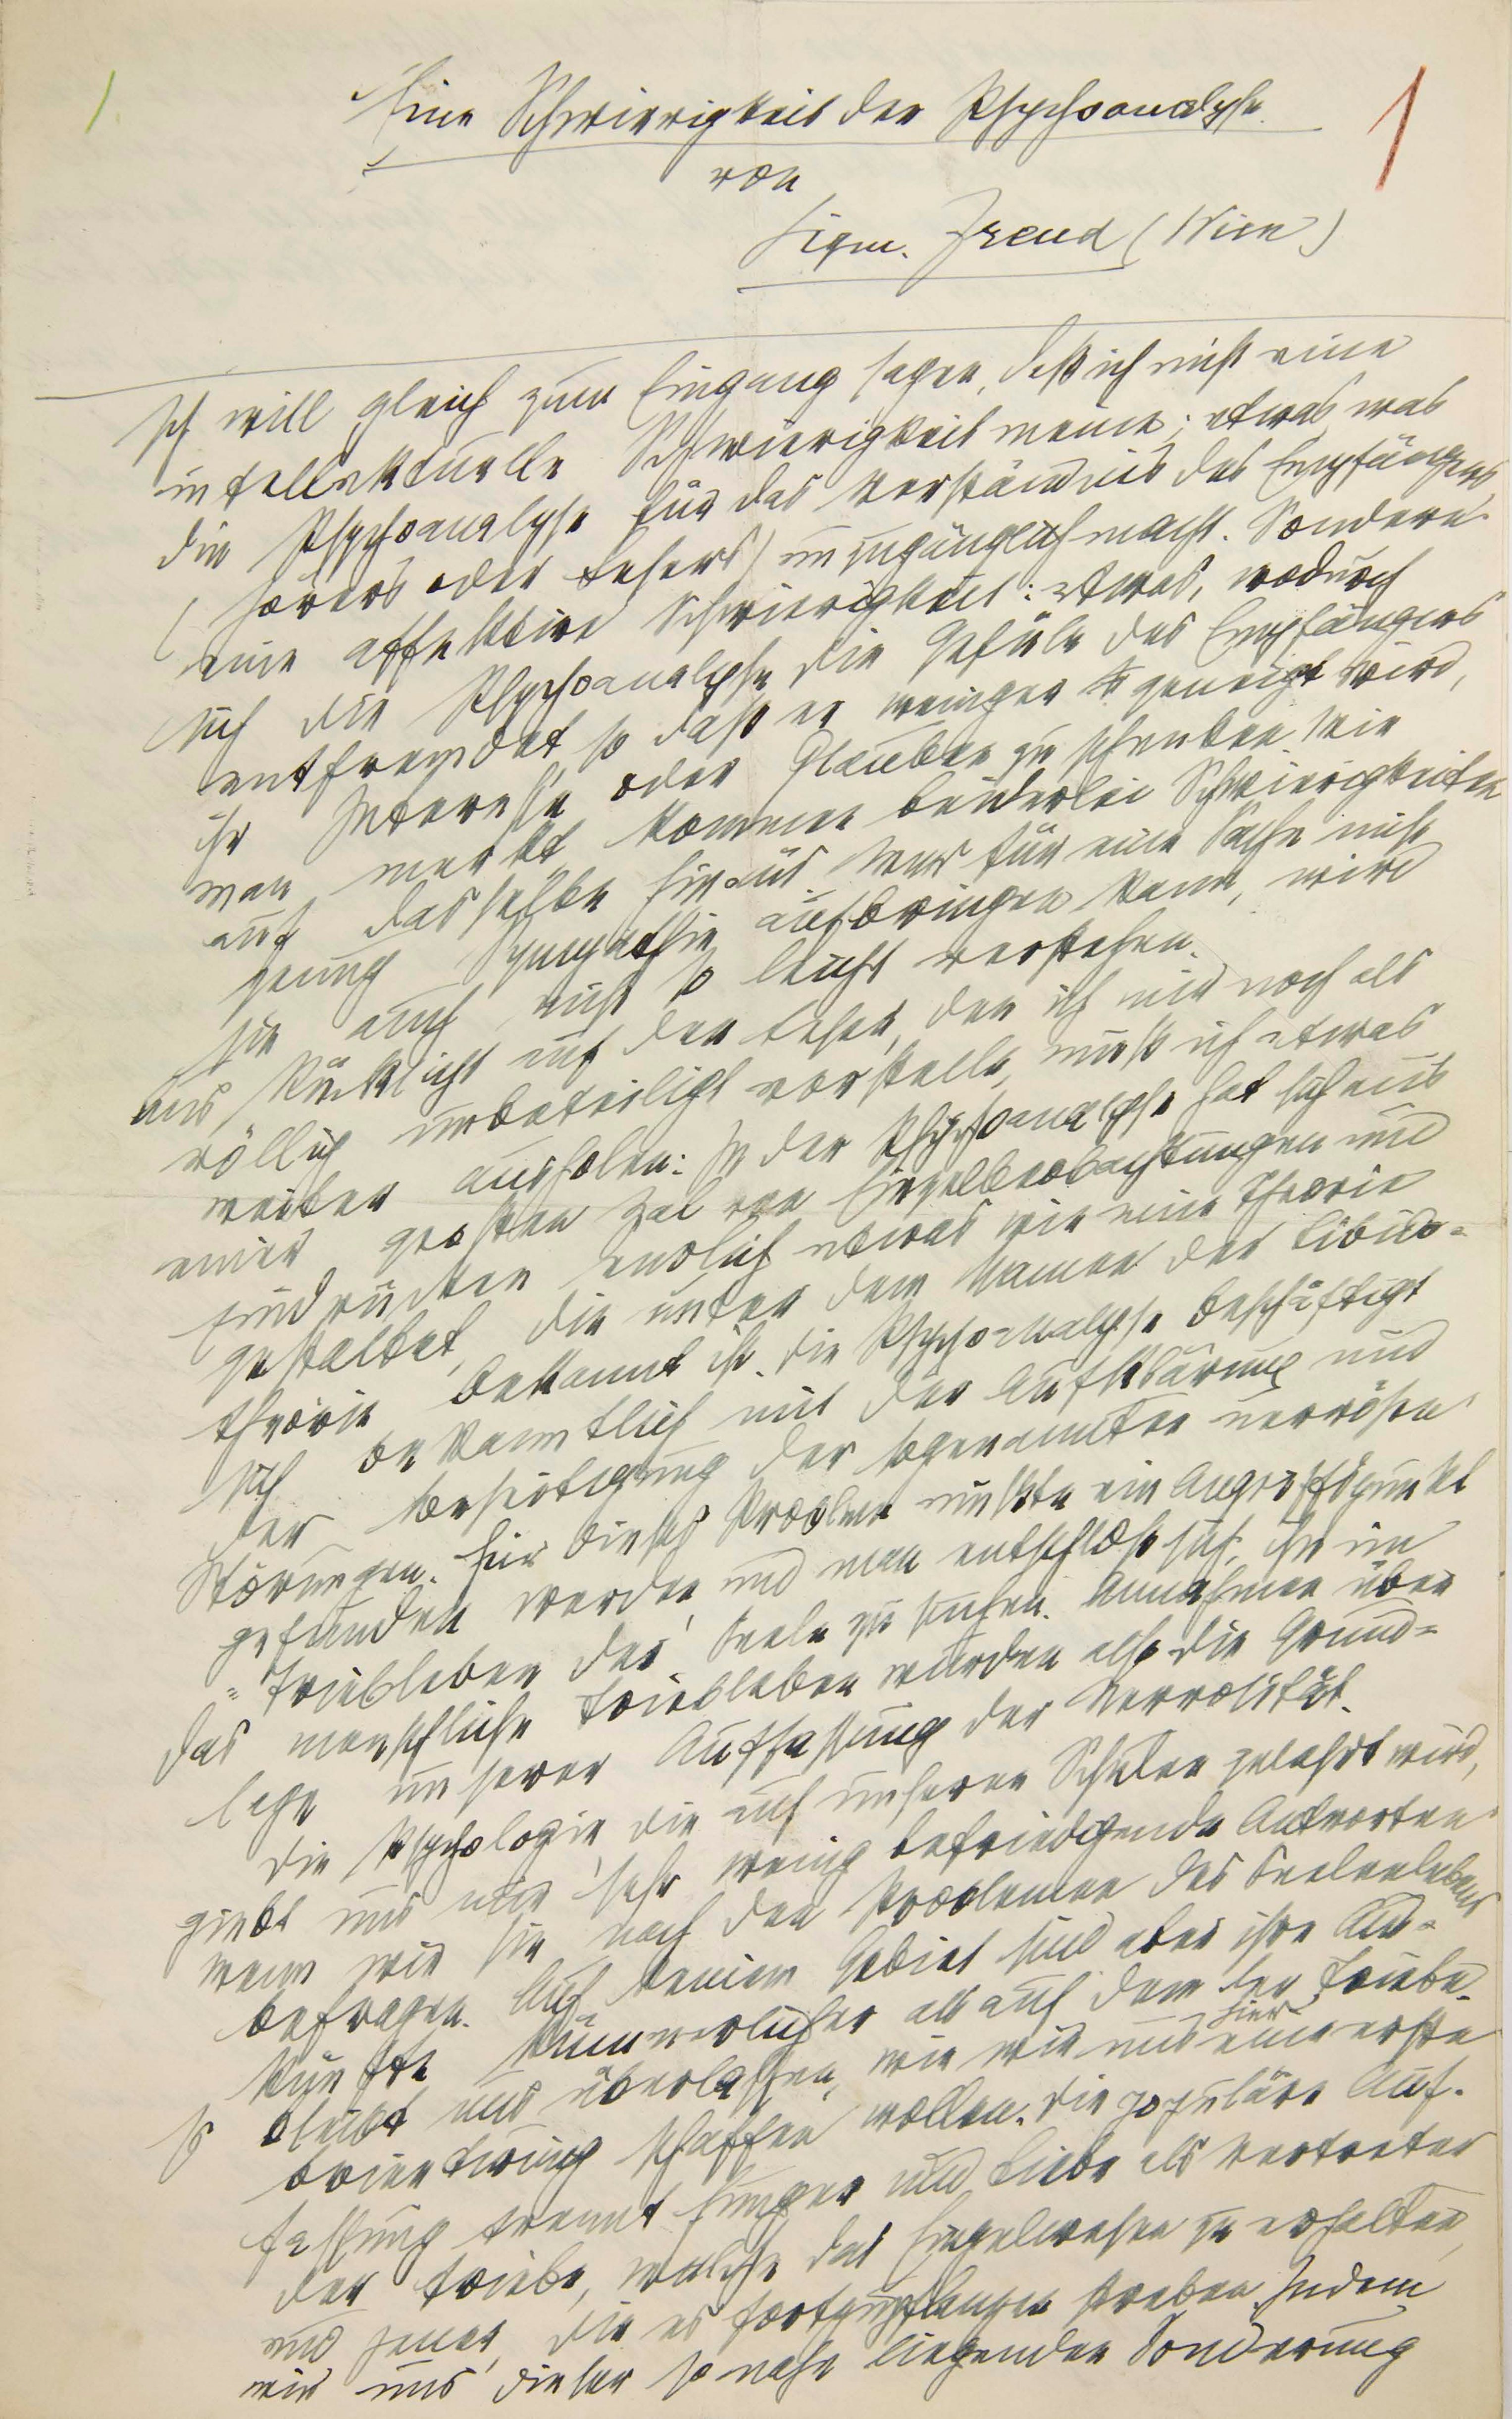 1
Eine Schwierigkeit der Psychoanalyse.
von
Sigm. Freud (Wien)
Ich will gleich zum Eingang sagen, daß ich nicht eine
intellektuelle Schwierigkeit meine; etwas, was
die Psychoanalyse für das Verständnis des Empfängers
(Hörers oder Lesers) unzugänglich macht. Sondern
eine affektive Schwierigkeit: etwas, wodurch
sich die Psychoanalyse die Gefüle des Empfängers
entfremdet, so daß er weniger geneigt wird,
ihr Interesse oder Glauben zu schenken. Wie
man merkt, kommen beiderlei Schwierigkeiten
auf dasselbe hinaus. Wer für eine Sache nicht
genug Sympathie aufbringen kann, wird
sie auch nicht so leicht verstehen.
Aus Rücksicht auf den Leser, den ich mir noch als
völlig unbeteiligt vorstelle, muß ich etwas
weiter ausholen. In der Psychoanalyse hat sich aus
einer großen Zal von Einzelbeobachtungen und
Eindrücken endlich etwas wie eine Theorie
gestaltet, die unter dem Namen der Libido-
theorie bekannt ist. Die Psychoanalyse beschäftigt
sich bekanntlich mit der Aufklärung und
der Beseitigung der sogenannten nervösen
Störungen. Für dieses Problem mußte ein Angriffspunkt
gefunden werden, und man entschloß sich, ihn im
Triebleben der Seele zu suchen. Annahmen über
das menschliche Triebleben wurden also die Grund-
lage unserer Auffassung der Nervosität.
Die Psychologie, die auf unseren Schulen gelehrt wird,
giebt uns nur sehr wenig befriedigende Antworten
wenn wir sie nach den Problemen des Seelenlebens
befragen. Auf keinem Gebiet sind aber ihre Aus-
künfte kümmerlicher als auf dem der Triebe.
Es bleibt uns überlassen, wie wir uns hier eine erste
Orientirung schaffen wollen. Die populäre Auf-
fassung trennt Hunger und Liebe als Vertreter
der Triebe, welche das Einzelwesen zu erhalten,
und jener, die es fortzupflanzen streben. Indem
wir uns dieser so nahe liegenden Sonderung